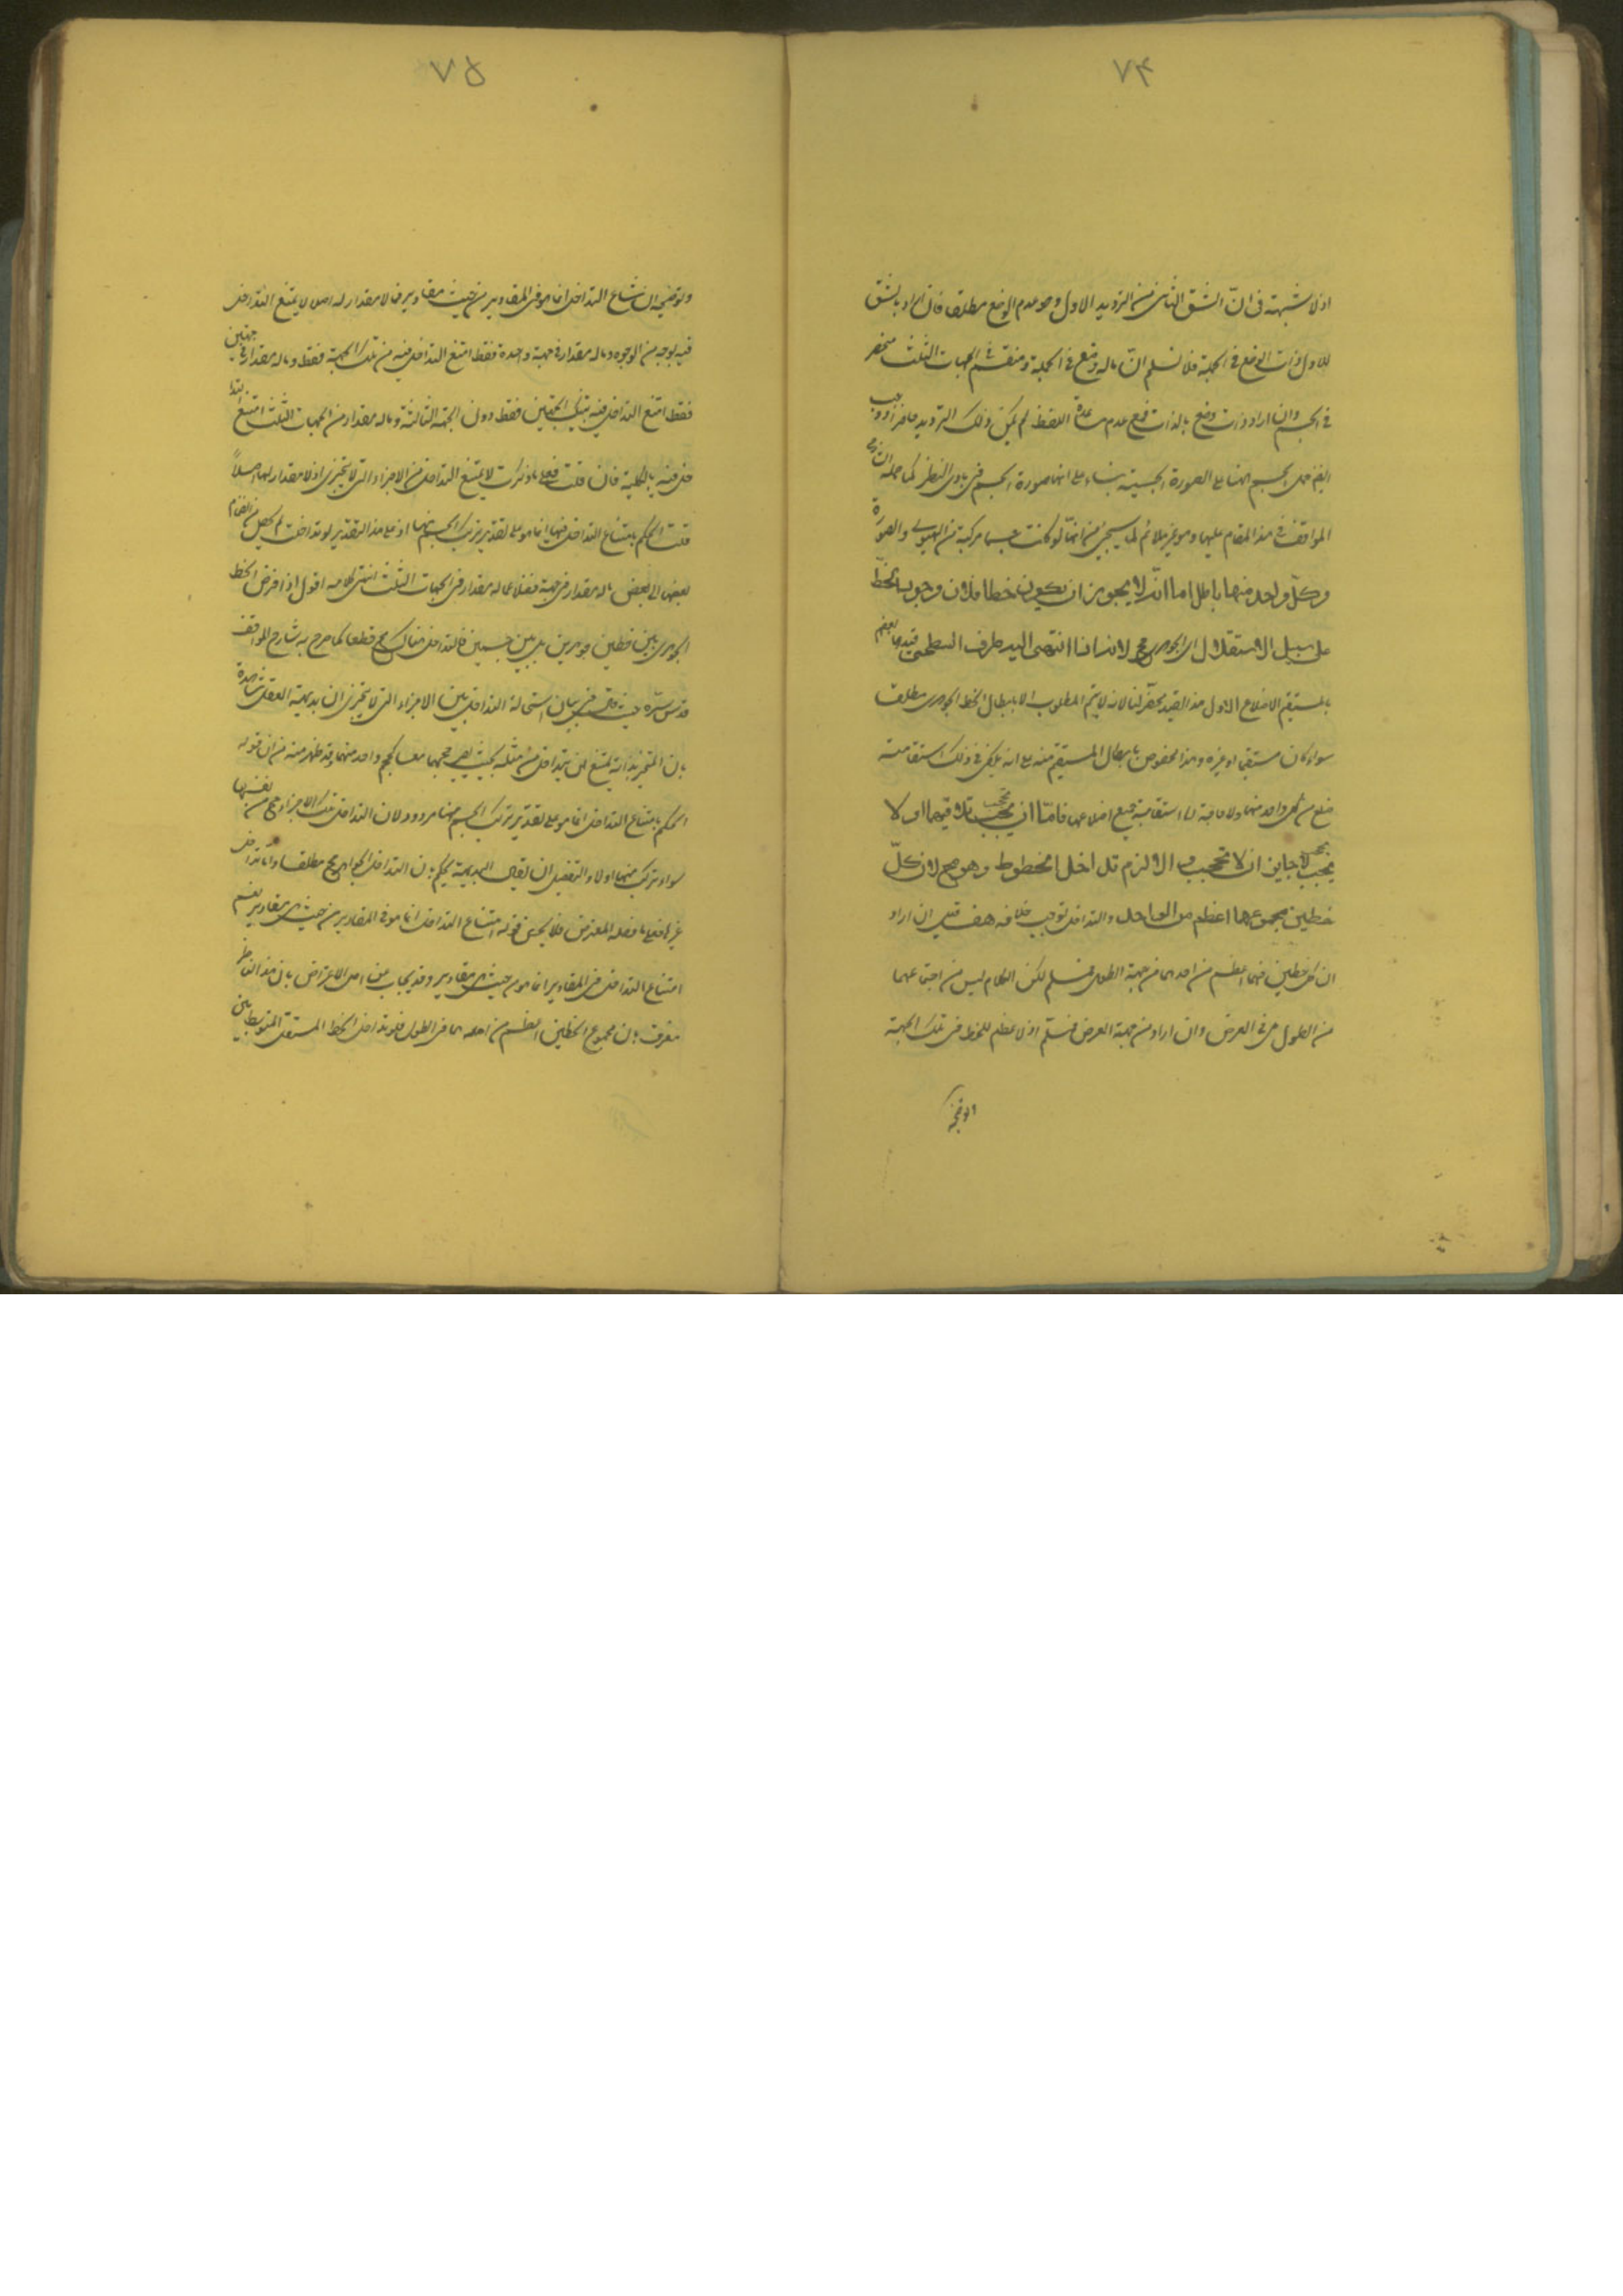 ٧٤
اذ لا شبهة فى انّ الشق الثانى من الترديد الاول وهو عدم الوضع مطلقا فان اراد بالشق
الاول ذات الوضع فى الجملة فلا نسلم انّ ماله وضع فى الجملة ومنقسم فى الجهات الثلث منحصر
فى الجسم وان اراد ذات وضع بالذات فمع عدم مساعدة اللفظ لم يكن ذلك الترديد حاصرا ووجب
ايضا حمل الجسم ههنا على الصورة الجسمية بناء على انها صورة الجسم فى بادى النظر كما حمله شارح
المواقف فى هذا المقام عليها وهو غير ملائم لما سيجئ من انها لو كانت جسما مركبة من الهيولى والصورة
وكلّ واحد منها باطل اما انّه لا يجوز ان يكون خطا فلان وجود الخطّ
على سبيل الاستقلال اى الجوهرى مح لانه اذا انتهى اليه طرف السطحين قيدهما بعضهم
بمستقيم الاضلاع اقول هذا القيد مضر لنا لانه لا يتم المطلوب الا بابطال الخط الجوهرى مطلقا
سواء كان مستقيما او غيره وهذا مخصوص بابطال المستقيم منه على انه يكفى فى ذلك استقامة
ضلع من كل واحد منهما ولا حاجة الى استقامة جميع اضلاعهما فامّا ان يحجب تلاقيهما او لا
يحجب لا جايز ان لا يحجب والا لزم تداخل الخطوط وهو مح لان كلّ
خطين مجموعهما اعظم من الواحد والتداخل يوجب خلافه هف قيل ان اراد
ان كل خطين فهما اعظم من احدهما فى جهة الطول فمسلم لكن الكلام ليس فى اجتماعهما
من الطول بل فى العرض وان اراد فى جهة العرض فممنوع اذ لا عظم للخط فى تلك الجهة
وتوضيحه
٧٥
وتوضيحه ان امتناع التداخل انما هو فى المقادير من حيث هى مقادير فما لا مقدار له اصلا لا يمتنع التداخل
فيه بوجه من الوجوه وماله مقدار فى جهة واحدة فقط امتنع التداخل فيه من تلك الجهة فقط وماله مقدار فى جهتين
فقط امتنع التداخل فيه بتينك الجهتين فقط دون الجهة الثالثة وماله مقدار من الجهات الثلث امتنع التدا
خل فيه بالكلية فان قلت فعلى ما ذكرت لا يمتنع التداخل من الاجزاء التى لا يتجزى اذ لا مقدار لها اصلاً
قلت الحكم بامتناع التداخل فيها انما هو على تقدير تركب الجسم منها اذ على هذا التقدير لو تداخلت لم يحصل من انضمام
بعض الى بعض ماله مقدار فى جهة فضلا عما له مقدار فى الجهات الثلث انتهى كلامه اقول اذا فرض الخط
الجوهرى بين خطين جوهريين بل بين جسمين فالتداخل هناك مح قطعا كما صرح به شارح المواقف
قدس سره حيث قال فى بيان استحالة التداخل بين الاجزاء التى لا يتجزى ان بديهة العقل شاهدة
بان المتحيز بذاته يمتنع ان يتداخل فى مثله بحيث يصير حجمهما معا كحجم واحد منهما وقد ظهر منه ان قوله
الحكم بامتناع التداخل انما هو على تقدير تركب الجسم منها مردود لان التداخل تلك الاجزاء مح فى نفسها
سواء تركب منها او لا والتفصيل ان يقال البديهة يحكم بان التداخل الجواهر مح مطلقا واما تداخل
غيرها فعلى ما فصله المعترض فلا يحسن قوله امتناع التداخل انما هو فى المقادير من حيث هى مقادير نعم
امتناع التداخل فى المقادير انما هو من حيث هى مقادير وقد يجاب عن اصل الاعتراض بان هذا الناظر
معترف بان مجموع الخطين اعظم من احدهما فى الطول فلو تداخل الخط المستقل المتوسط بين